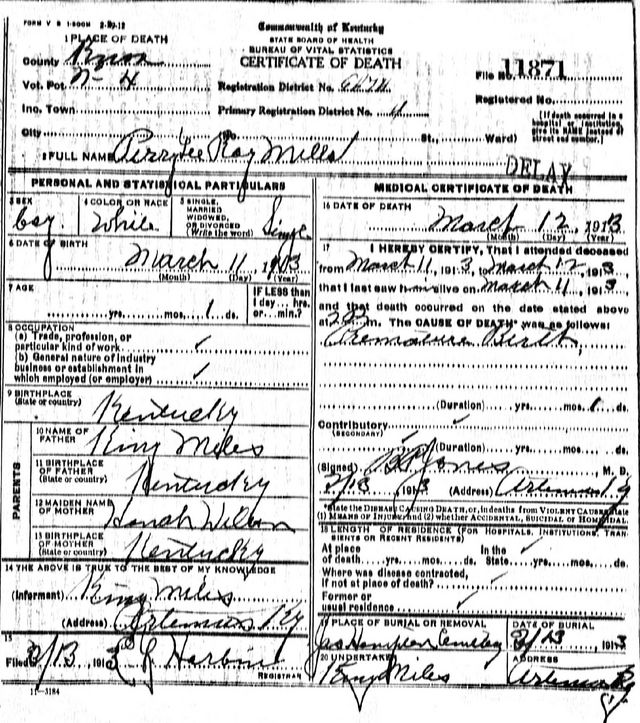 FORM V S 1-500M 2-29-12
Commonwealth of Kentucky
STATE BOARD OF HEALTH
BUREAU OF VITAL STATISTICS
CERTIFICATE OF DEATH
1 PLACE OF DEATH
County Knox
Vot. Pct. N-4
Inc. Town
City
Registration District No.
Primary Registration District No.
No
St., Ward)
File No. 11871
Registered No.
[If death occurred in a hospital or institution, give its NAME instead of street and number.]
2 FULL NAME Perry Lee Ray Mills
DELAY
PERSONAL AND STATISTICAL PARTICULARS
3 SEX boy
4 COLOR OR RACE White
5 SINGLE, MARRIED, WIDOWED, OR DIVORCED (Write the word) Single
6 DATE OF BIRTH
March 11 1913
(Month) (Day) (Year)
7 AGE
yrs. mos. 1 ds.
IF LESS than 1 day hrs. or min.?
8 OCCUPATION
(a) Trade, profession, or particular kind of work ✓
(b) General nature of industry business or establishment in which employed (or employer) ✓
9 BIRTHPLACE
(State or country) Kentucky
PARENTS
10 NAME OF FATHER King Miles
11 BIRTHPLACE OF FATHER (State or country) Kentucky
12 MAIDEN NAME OF MOTHER
13 BIRTHPLACE OF MOTHER (State or country) Kentucky
14 THE ABOVE IS TRUE TO THE BEST OF MY KNOWLEDGE
(Informant) King Miles
(Address) Artemus Ky
15
Filed 3/13 1913
REGISTRAR
11-3184
MEDICAL CERTIFICATE OF DEATH
16 DATE OF DEATH
March 12, 1913
(Month) (Day) (Year)
17 I HEREBY CERTIFY, That I attended deceased
from March 11, 1913, to March 12 1913,
that I last saw him alive on March 11, 1913
and that death occurred on the date stated above
at m. The CAUSE OF DEATH* was as follows:
Premature Birth,
(Duration) yrs. mos. 1 ds.
Contributory ✓
(SECONDARY)
(Duration) yrs. mos. ds.
(Signed) Jones M. D.
3/13 1913 (Address) Artemus Ky
*State the DISEASE CAUSING DEATH, or, in deaths from VIOLENT CAUSES, state (1) MEANS OF INJURY; and (2) whether ACCIDENTAL, SUICIDAL OR HOMICIDAL.
18 LENGTH OF RESIDENCE (FOR HOSPITALS, INSTITUTIONS, TRANSIENTS OR RECENT RESIDENTS)
At place of death yrs. mos. ds. In the State yrs. mos. ds.
Where was disease contracted, if not at place of death? ✓
Former or usual residence ✓
19 PLACE OF BURIAL OR REMOVAL
Jas Hampton Cemetery
DATE OF BURIAL
3/13 1913
20 UNDERTAKER
King Miles
ADDRESS
Artemus Ky